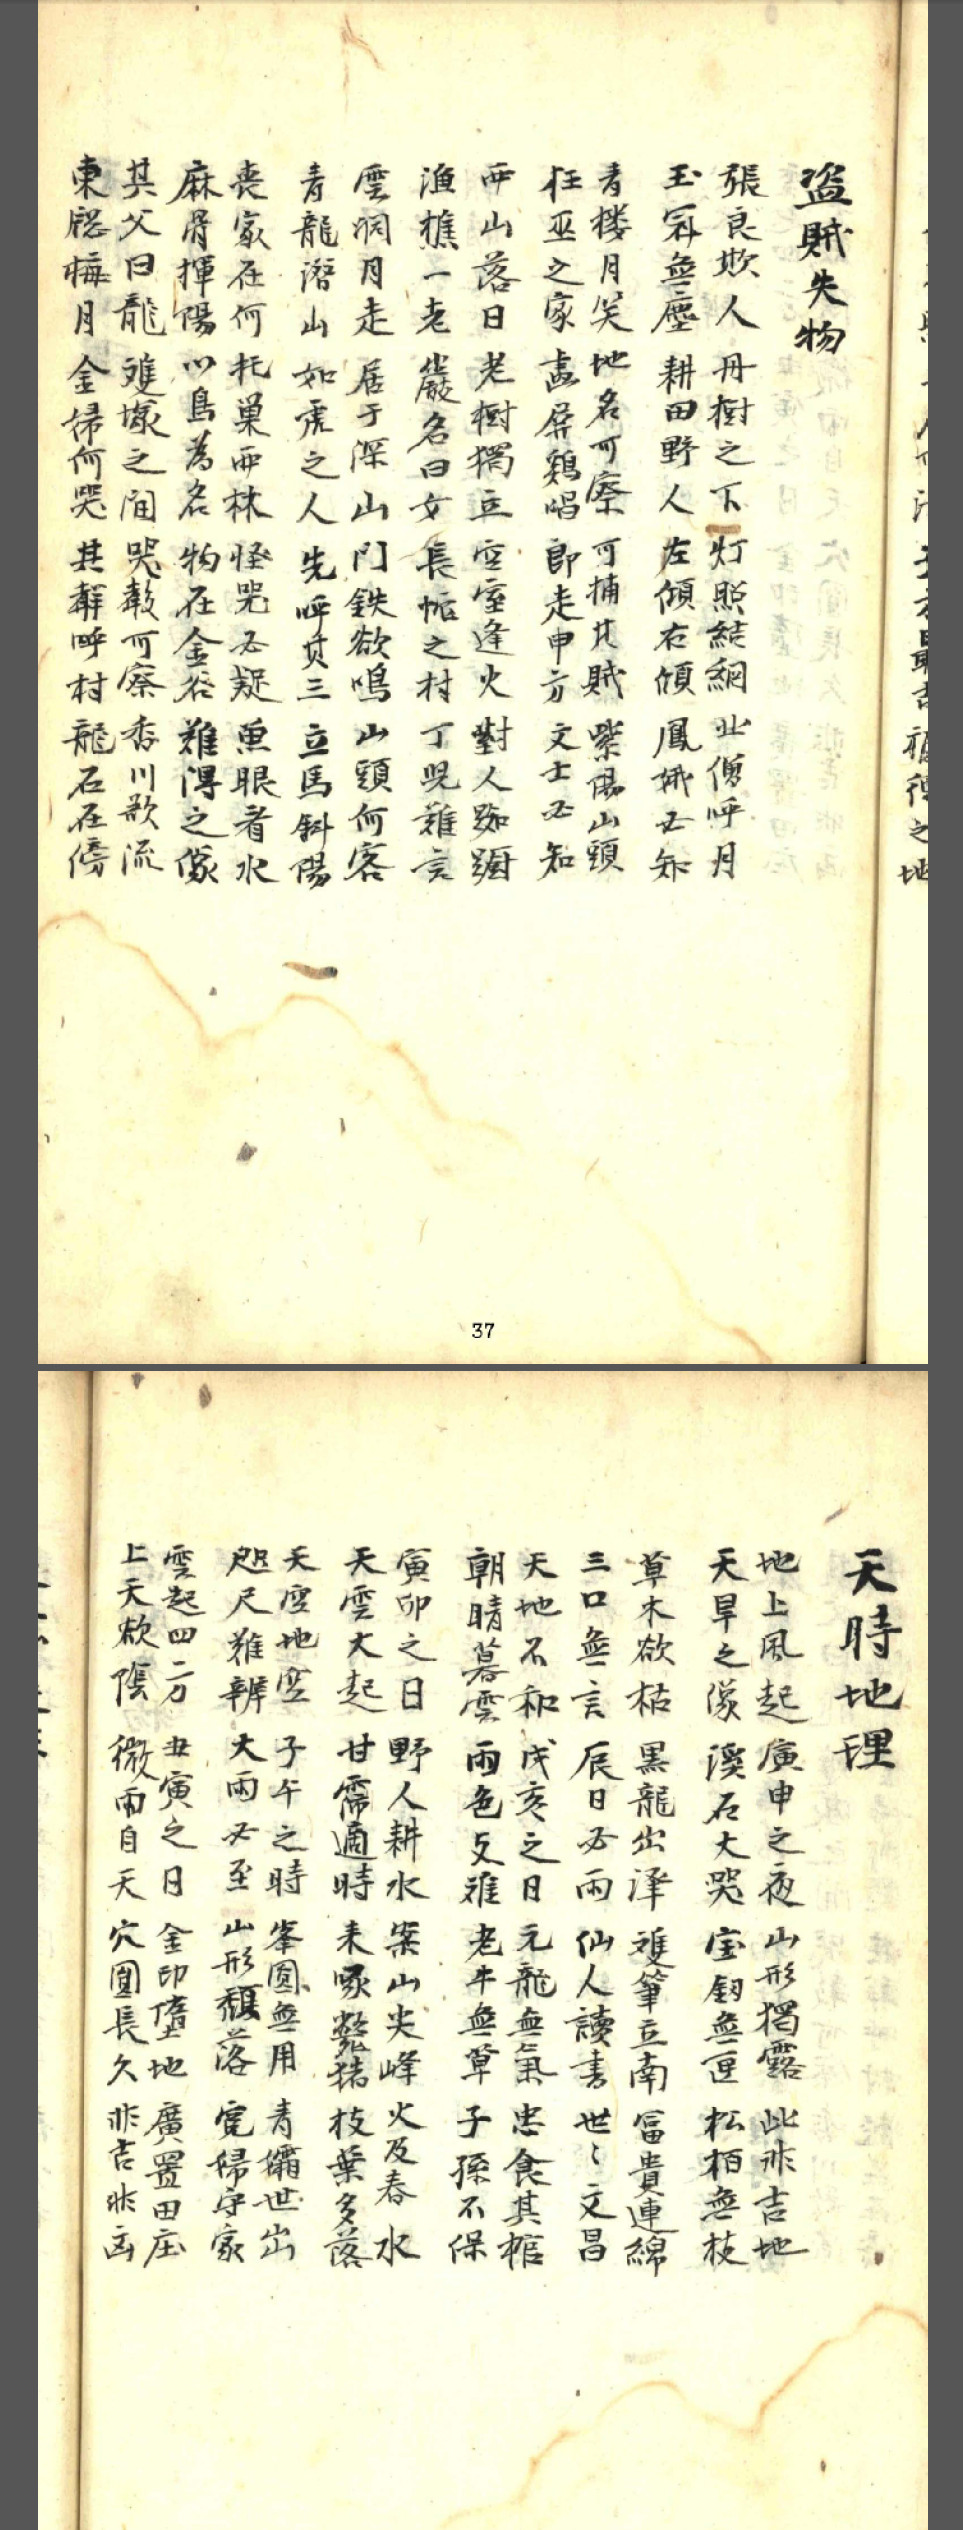 盜賊失物
張良欺人 丹樹之下 灯照結網 北僧呼月
玉冠無塵 耕田野人 左傾右傾 鳳城必知
青楼月笑 地名可察 可捕其賊 紫陽山頭
狂巫之家 畵屏鷄唱 郎走申方 文士必知
西山落日 老樹獨立 空室逢火 對人踟躕
漁樵一老 巖名曰女 長惤之村 丁兇難言
雲洞月走 居于深山 門鉄欲鳴 山頭何客
青龍潛山 如虎之人 先呼其三 立馬斜陽
喪家在何 托巢西林 怪哭必疑 魚眼看水
麻骨揮陽 以鳥為名 物在金谷 難得之像
其父曰龍 雙塚之間 哭聲可察 香川歌流
東牕梅月 金婦何哭 其聲呼村 龍石在傍
37
天時地理
地上風起 庚申之夜 山形獨露 此非吉地
天旱之像 溪石大哭 宝釰無匣 松栢無枝
草木欲枯 黑龍出澤 雙筆立南 冨貴連綿
三口無言 辰日必雨 仙人讀書 世〻文昌
天地不和 戊亥之日 元龍無氣 忠食其棺
朝晴暮雲 雨色支離 老牛無草 子孫不保
寅卯之日 野人耕水 案山尖峰 火及春水
天雲大起 甘霈適時 来啄獘猪 枝葉多落
天空地空 子午之時 峯圓無用 青孀世出
咫尺難辨 大雨必至 山形頹落 寃婦守家
雲起四方 丑寅之日 金印墮地 廣置田庄
上天欲陰 微雨自天 穴圓長久 非吉非凶